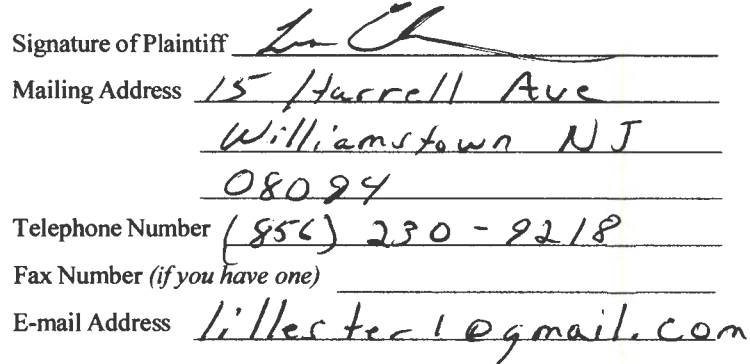 Signature of Plaintiff
Mailing Address 15 Harrell Ave
Williamstown NJ
08094
Telephone Number (856) 230-9218
Fax Number (if you have one)
E-mail Address lillester1@gmail.com